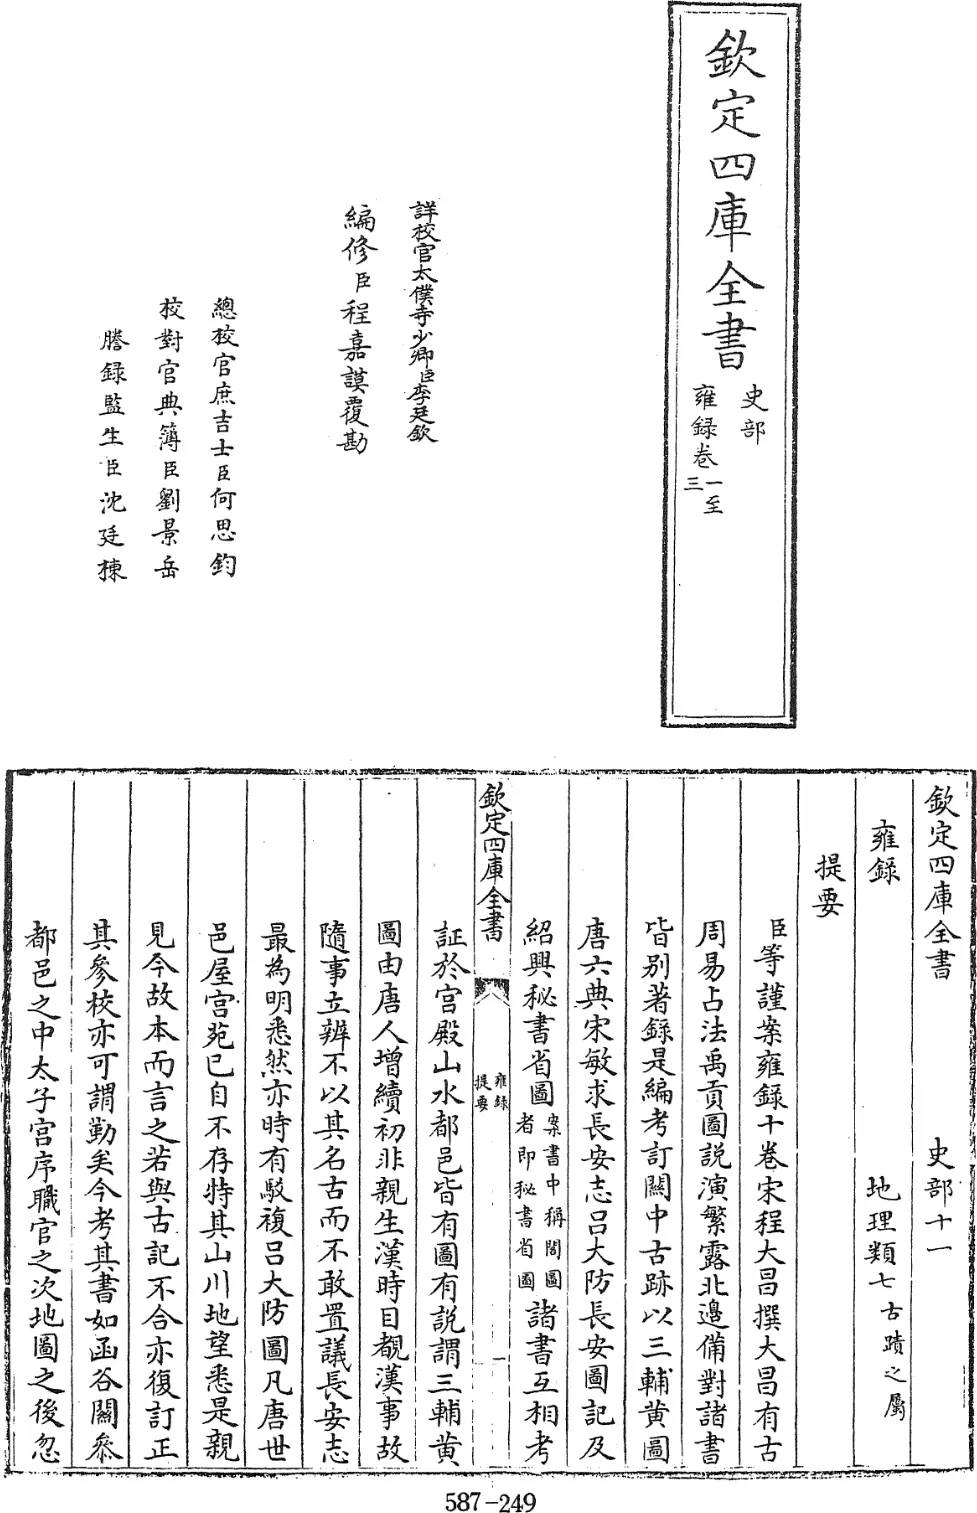 欽定四庫全書
史部
雍録卷一至三
詳校官太僕寺少卿臣李廷欽
編修臣程嘉謨覆勘
總校官庶吉士臣何思鈞
校對官典簿臣劉景岳
謄録監生臣沈廷棟
欽定四庫全書 史部十一
雍録 地理類七古蹟之屬
提要
臣等謹案雍録十卷宋程大昌撰大昌有古
周易占法禹貢圖説演繁露北邊備對諸書
皆别著録是編考訂關中古跡以三輔黄圖
唐六典宋敏求長安志吕大防長安圖記及
紹興秘書省圖案書中稱閣圖者即秘書省圖諸書互相考
欽定四庫全書
雍録
提要
一
証於宫殿山水都邑皆有圖有説謂三輔黄
圖由唐人增續初非親生漢時目覩漢事故
隨事立辨不以其名古而不敢置議長安志
最為明悉然亦時有駁複吕大防圖凡唐世
邑屋宫苑已自不存特其山川地望悉是親
見今故本而言之若與古記不合亦復訂正
其參校亦可謂勤矣今考其書如函谷關叅
都邑之中太子宫序職官之次地圖之後忽
587-249